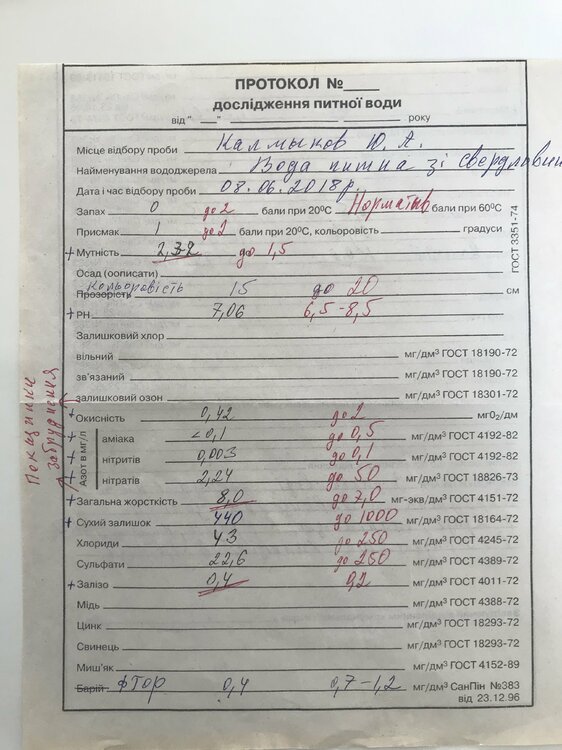 ПРОТОКОЛ №____
дослідження питної води
від "___" ____________ ______ року
Місце відбору проби Калмыков Ю. А.
Найменування вододжерела Вода питна зі свердловини
Дата і час відбору проби 08.06.2018р.
Запах 0 до 2 бали при 20°С Норматив бали при 60°С
Присмак 1 до 2 бали при 20°С, кольоровість градуси
+ Мутність 2,32 до 1,5
Осад (оописати)
Кольоровість
Прозорість 15 до 20 см
+ РН 7,06 6,5-8,5
ГОСТ 3351-74
Залишковий хлор
вільний мг/дм³ ГОСТ 18190-72
зв'язаний мг/дм³ ГОСТ 18190-72
залишковий озон мг/дм³ ГОСТ 18301-72
Показники забруднення
+ Окисність 0,42 до 2 мг0₂/дм
Азот в мг/л
+ аміака <0,1 до 0,5 мг/дм³ ГОСТ 4192-82
+ нітритів 0,003 до 0,1 мг/дм³ ГОСТ 4192-82
+ нітратів 2,24 до 50 мг/дм³ ГОСТ 18826-73
+ Загальна жорсткість 8,0 до 7,0 мг-экв/дм³ ГОСТ 4151-72
+ Сухий залишок 440 до 1000 мг/дм³ ГОСТ 18164-72
Хлориди 43 до 250 мг/дм³ ГОСТ 4245-72
Сульфати 22,6 до 250 мг/дм³ ГОСТ 4389-72
+ Залізо 0,4 0,2 мг/дм³ ГОСТ 4011-72
Мідь мг/дм³ ГОСТ 4388-72
Цинк мг/дм³ ГОСТ 18293-72
Свинець мг/дм³ ГОСТ 18293-72
Миш'як мг/дм³ ГОСТ 4152-89
Барій фтор 0,4 0,7-1,2 мг/дм³ СанПін №383
від 23.12.96